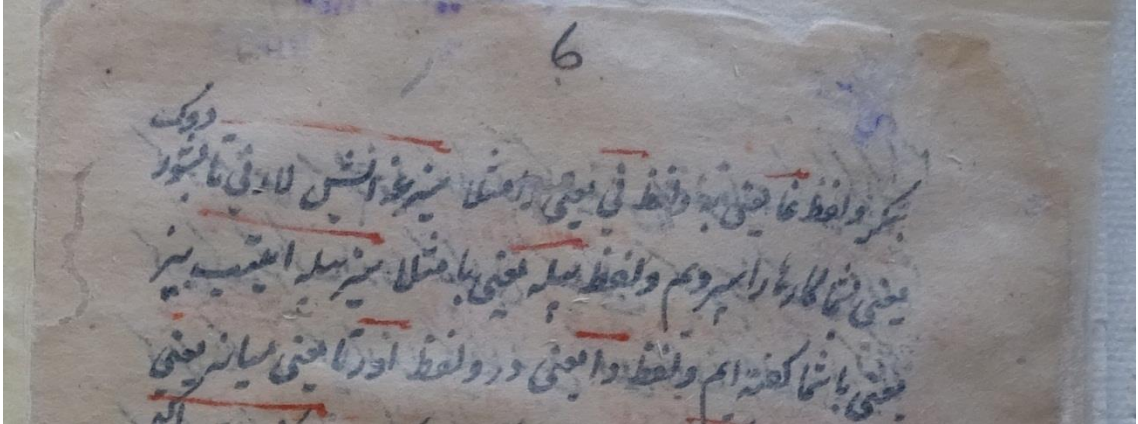 6
دوک
بکر و لفظ غا یعنی به و لفظ نی یعنی را مثلا سیزغه ایشلارنی تابشور
یعنی شما کارها را سپردیم و لفظ بیله یعنی با مثلا سیز بیله ایتیب بیز
یعنی با شما گفته ایم و لفظ دا یعنی در و لفظ اورتا یعنی میانه یعنی